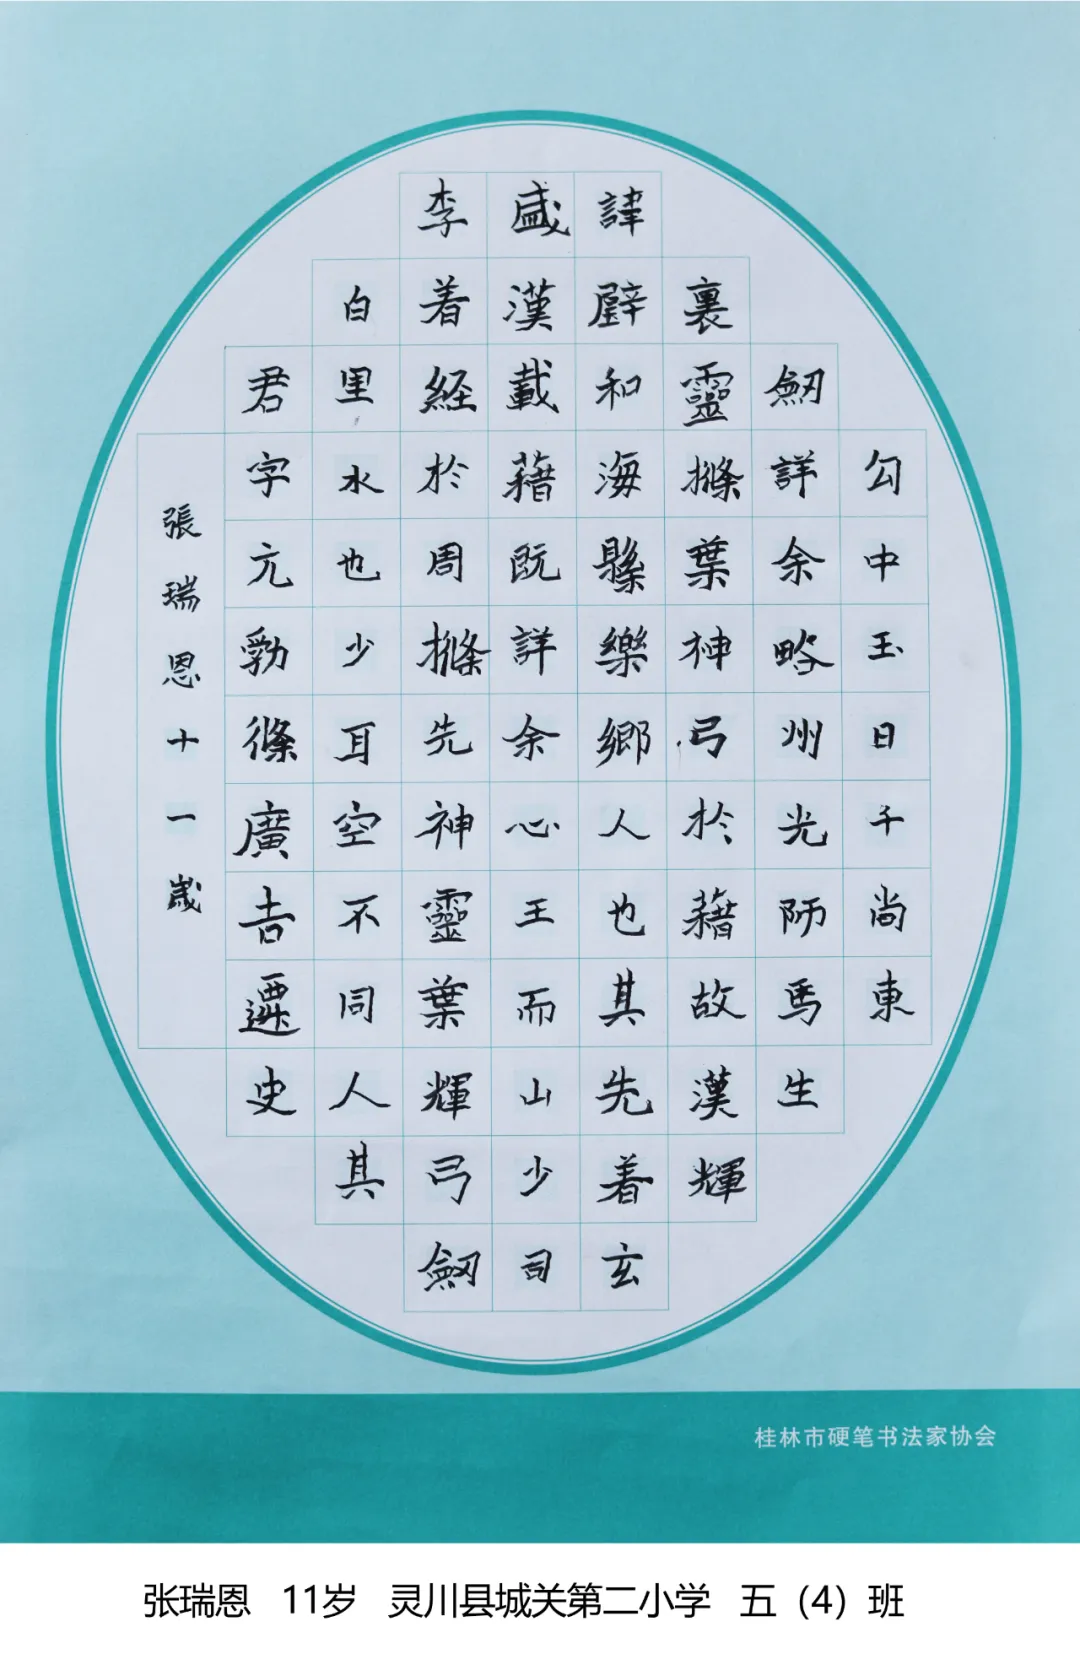 勾中玉日千尚東
劒詳余略州光师馬生
裏靈滌葉神弓於藉故漢輝
諱壁和海縣樂鄉人也其先着玄
盛漢載藉既詳余心王而山少司
李着經於周滌先神靈葉輝弓劒
白里水也少耳空不同人其
君字元勃條廣吉遷史
張瑞恩十一歲
桂林市硬笔书法家协会
张瑞恩 11岁 灵川县城关第二小学 五（4）班